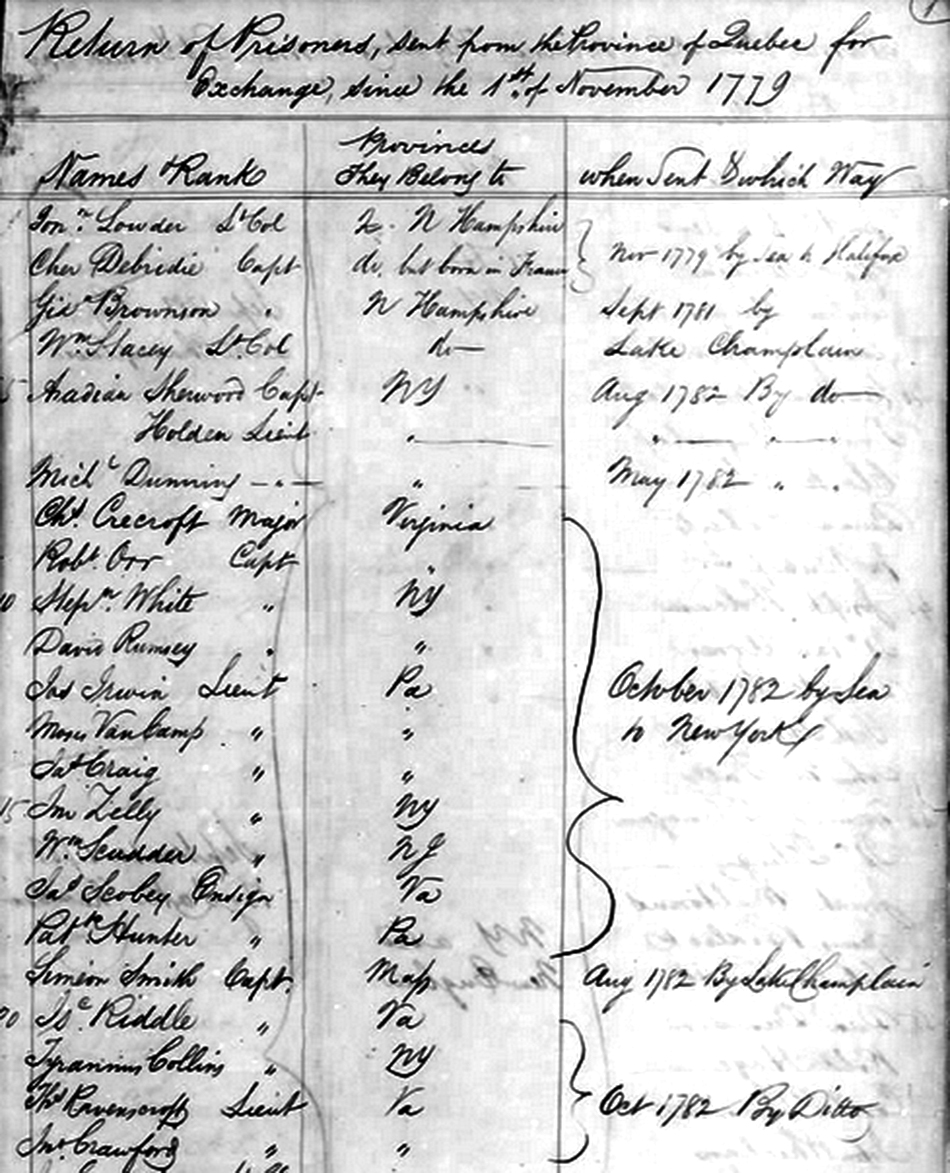 Return of Prisoners, sent from the Province of Quebec for
Exchange, since the 1st. of November 1779
Names & Rank Provinces They Belong to when Sent & which Way
Jonn. Lowder Lt Col N Hampshire
Cher Debridie Capt do. but born in France Nov 1779 by Sea to Halifax
Brownson " N Hampshire Sept 1781 by
Wm. Stacey Lt. Col do— Lake Champlain
5 Sherwood Capt NY Aug 1782 By do—
Holden Lieut " " "
Michl Dunning " " May 1782 " "
Chs. Crecroft Major Virginia
Robt. Orr Capt "
10 Stepn. White " NY
David Rumsey " "
Jas Irwin Lieut Pa October 1782 by Sea
Moses Van Camp " " to New York
Craig " "
15 Jno Zelly " NY
Wm. Scudder " NJ
Jas Scobey Ensign Va
Patk Hunter " Pa
Simeon Smith Capt. Mass Aug 1782 By Lake Champlain
20 Isc. Riddle " Va
Tyrannius Collins " NY
Ths Ravenscroft Lieut Va Oct 1782 By Ditto
Jno. Crawford " "